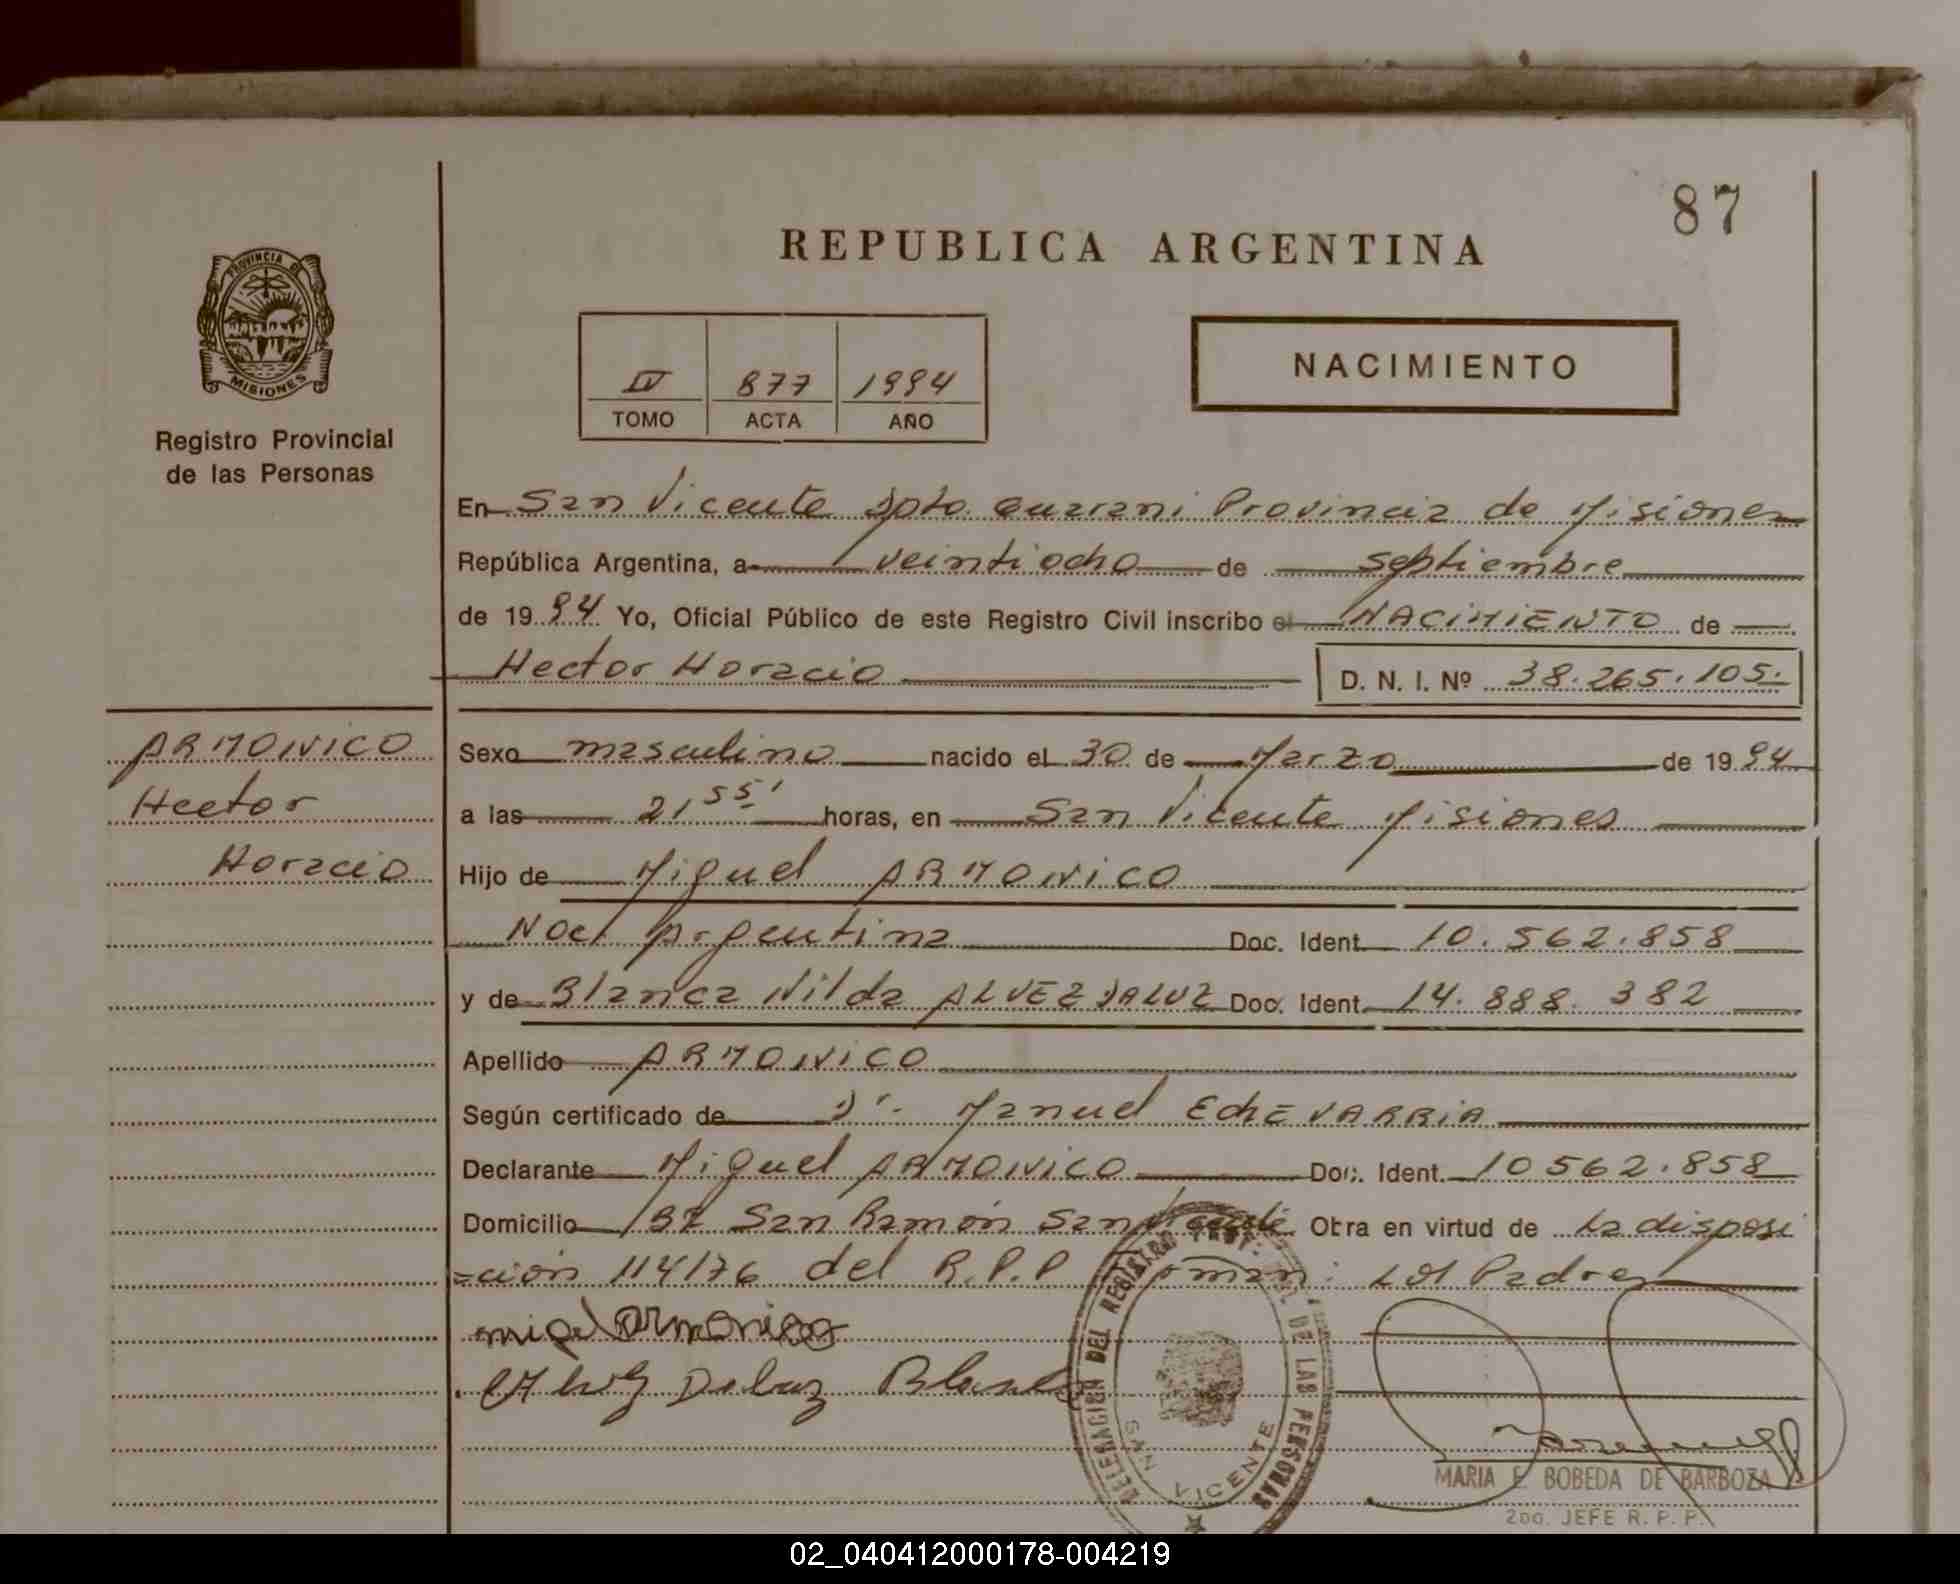 87
REPUBLICA ARGENTINA
PROVINCIA DE
MISIONES
Registro Provincial
de las Personas
IV 877 1994
TOMO ACTA AÑO
NACIMIENTO
En San Vicente Dpto. Guarani Provincia de Misiones
República Argentina, a veintiocho de septiembre
de 1994 Yo, Oficial Público de este Registro Civil inscribo el NACIMIENTO de
Hector Horacio D. N. I. Nº 38.265.105.
ARMONICO
Hector
Horacio
Sexo masculino nacido el 30 de Marzo de 1994
a las 21 55' horas, en San Vicente Misiones
Hijo de Miguel ARMONICO
Nac. Argentina Doc. Ident. 10.562.858
y de Blanca Nilda ALVEZ DALUZ Doc. Ident. 14.888.382
Apellido ARMONICO
Según certificado de Dr. Manuel EchEVARRIA
Declarante Miguel ARMONICO Doc. Ident. 10562.858
Domicilio San Ramón San Vicente Otra en virtud de La disposi
=ción 114/76 del R.P.P Forman: Los Padres
migel armonico
Blanca
DELEGACION DEL REGISTRO PROV. DE LAS PERSONAS
SAN VICENTE
MARIA E. BOBEDA DE BARBOZA
2do. JEFE R. P. P.
02_040412000178-004219